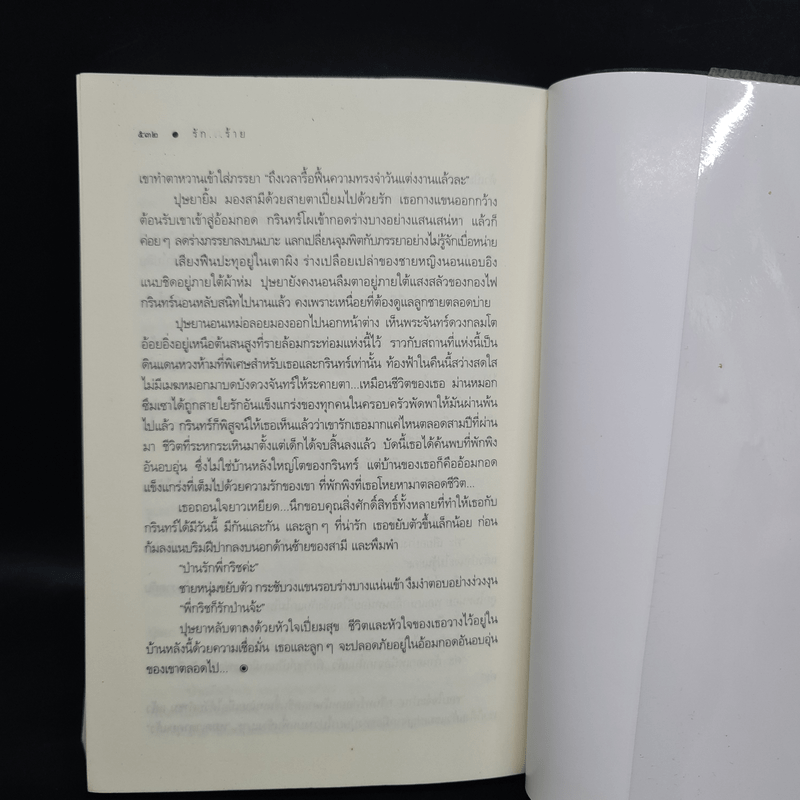 ๕๓๒ ● รัก...ร้าย
เขาทำตาหวานเข้าใส่ภรรยา "ถึงเวลารื้อฟื้นความทรงจำวันแต่งงานแล้วละ"
ปุษยายิ้ม มองสามีด้วยสายตาเปี่ยมไปด้วยรัก เธอกางแขนออกกว้าง
ต้อนรับเขาเข้าสู่อ้อมกอด กรินทร์โผเข้ากอดร่างบางอย่างแสนเสน่หา แล้วก็
ค่อยๆ ลดร่างภรรยาลงบนเบาะ แลกเปลี่ยนจุมพิตกับภรรยาอย่างไม่รู้จักเบื่อหน่าย
เสียงฟืนปะทุอยู่ในเตาผิง ร่างเปลือยเปล่าของชายหญิงนอนแอบอิง
แนบชิดอยู่ภายใต้ผ้าห่ม ปุษยายังคงนอนลืมตาอยู่ภายใต้แสงสลัวของกองไฟ
กรินทร์นอนหลับสนิทไปนานแล้ว คงเพราะเหนื่อยที่ต้องดูแลลูกชายตลอดบ่าย
ปุษยานอนเหม่อลอยมองออกไปนอกหน้าต่าง เห็นพระจันทร์ดวงกลมโต
อ้อยอิ่งอยู่เหนือต้นสนสูงที่รายล้อมกระท่อมแห่งนี้ไว้ ราวกับสถานที่แห่งนี้เป็น
ดินแดนหวงห้ามที่พิเศษสำหรับเธอและกรินทร์เท่านั้น ท้องฟ้าในคืนนี้สว่างสดใส
ไม่มีเมฆหมอกมาบดบังดวงจันทร์ให้ระคายตา...เหมือนชีวิตของเธอ ม่านหมอก
ซึมเซาได้ถูกสายใยรักอันแข็งแกร่งของทุกคนในครอบครัวพัดพาให้มันผ่านพ้น
ไปแล้ว กรินทร์ก็พิสูจน์ให้เธอเห็นแล้วว่าเขารักเธอมากแค่ไหนตลอดสามปีที่ผ่าน
มา ชีวิตที่ระหกระเหินมาตั้งแต่เด็กได้จบสิ้นลงแล้ว บัดนี้เธอได้ค้นพบที่พักพิง
อันอบอุ่น ซึ่งไม่ใช่บ้านหลังใหญ่โตของกรินทร์ แต่บ้านของเธอก็คืออ้อมกอด
แข็งแกร่งที่เต็มไปด้วยความรักของเขา ที่พักพิงที่เธอโหยหามาตลอดชีวิต...
เธอถอนใจยาวเหยียด...นึกขอบคุณสิ่งศักดิ์สิทธิ์ทั้งหลายที่ทำให้เธอกับ
กรินทร์ได้มีวันนี้ มีกันและกัน และลูกๆ ที่น่ารัก เธอขยับตัวขึ้นเล็กน้อย ก่อน
ก้มลงแนบริมฝีปากลงบนอกด้านซ้ายของสามี และพึมพำ
"ป่านรักพี่กริชค่ะ"
ชายหนุ่มขยับตัว กระชับวงแขนรอบร่างบางแน่นเข้า งึมงำตอบอย่างง่วงงุน
"พี่กริชก็รักป่านจ้ะ"
ปุษยาหลับตาลงด้วยหัวใจเปี่ยมสุข ชีวิตและหัวใจของเธอวางไว้อยู่ใน
บ้านหลังนี้ด้วยความเชื่อมั่น เธอและลูกๆ จะปลอดภัยอยู่ในอ้อมกอดอันอบอุ่น
ของเขาตลอดไป... ◉